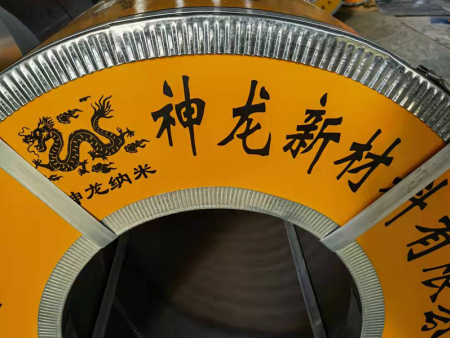 神龙新材料有限公
神龙纳米